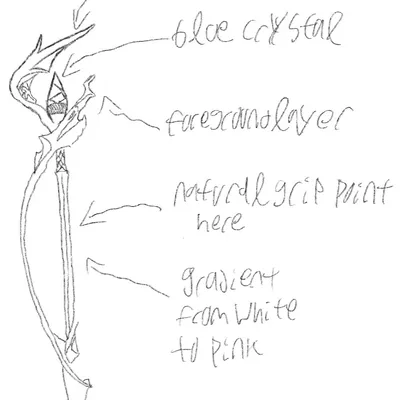 blue crystal
foreground layer
natural grip point
here
gradient
from white
to pink